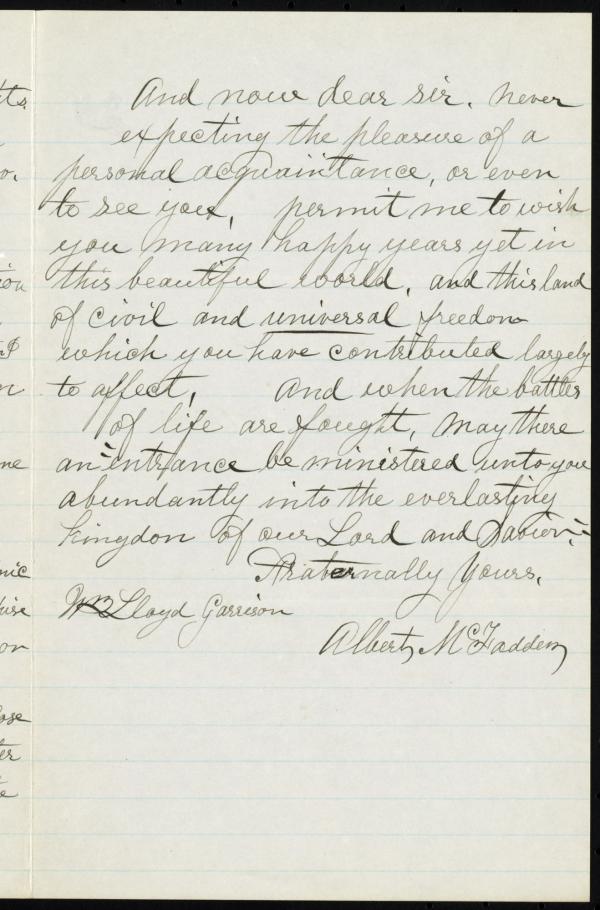 And now dear sir. never
expecting the pleasure of a
personal acquaintance, or even
to see you, permit me to wish
you many happy years yet in
this beautiful world, and this land
of civil and universal freedom
which you have contributed largely
to affect, And when the battles
of life are fought, may there
an entrance be ministered unto you
abundantly into the everlasting
kingdon of our Lord and Savior.
Fraternally Yours,
Wm Lloyd Garrison
Albert McFadden